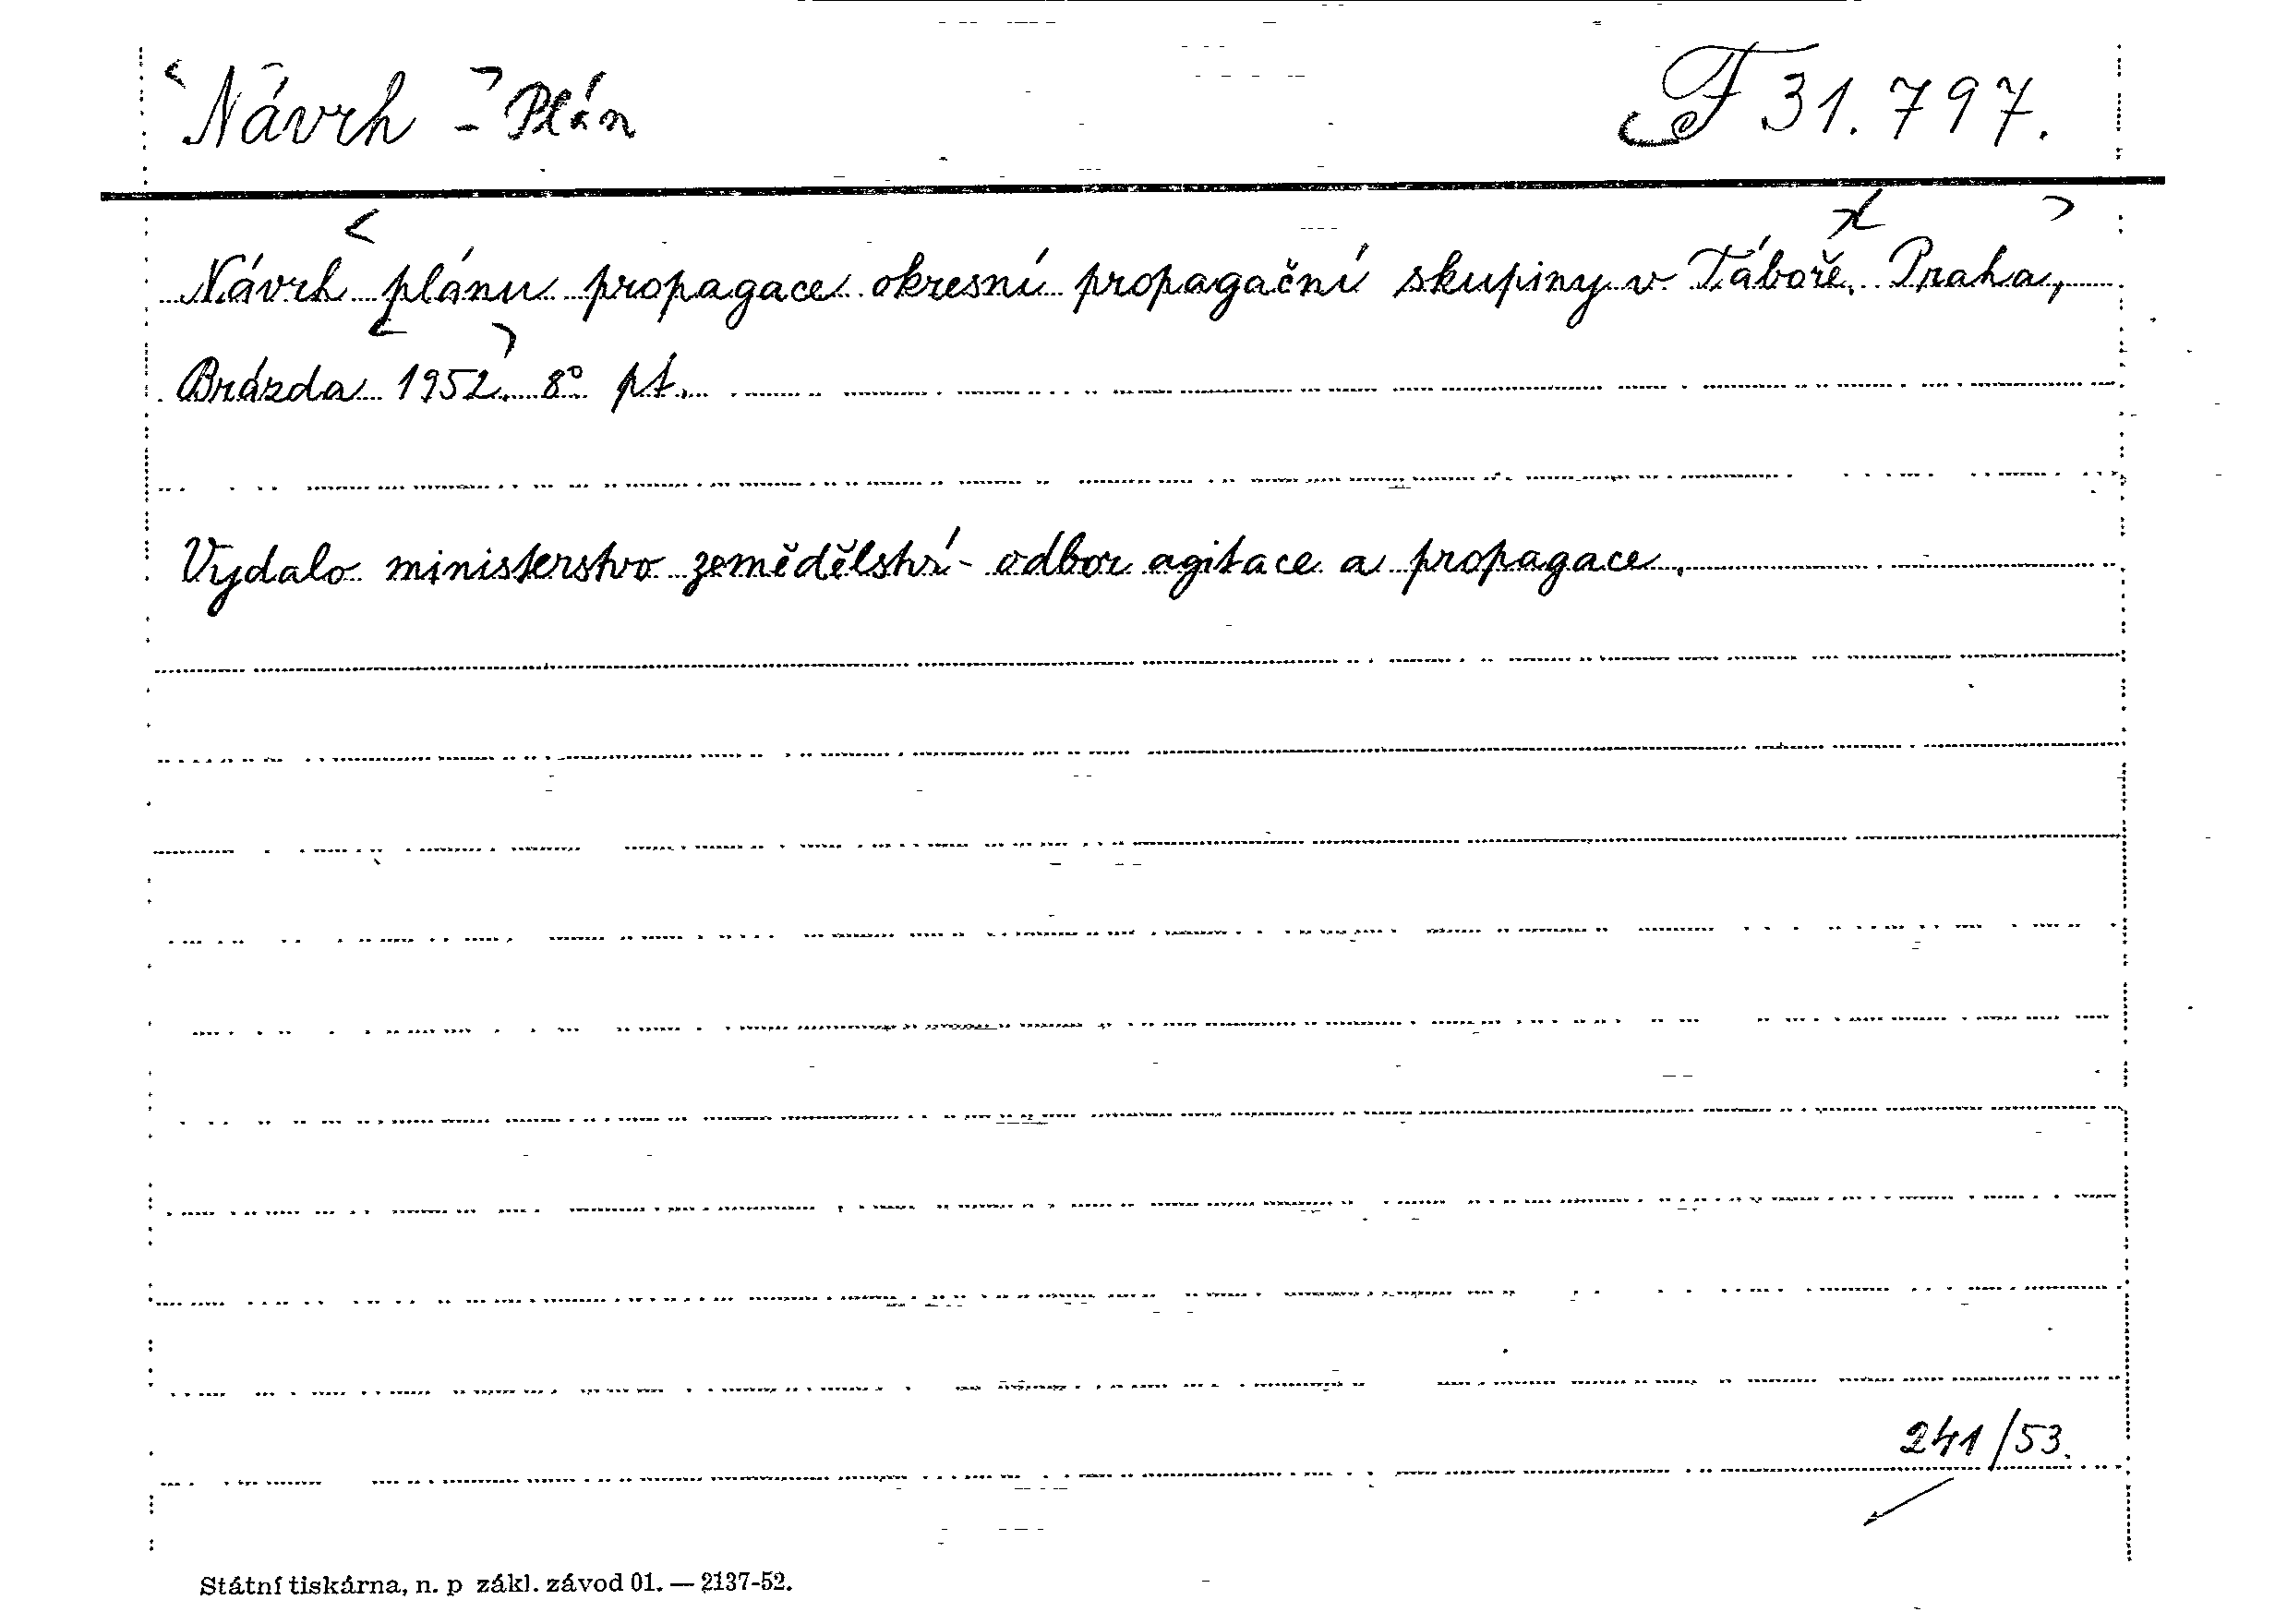 Návrh - Plán F 31.797.
Návrh plánu propagace okresní propagační skupiny v Táboře. Praha,
Brázda 1952. 8° pt.
Vydalo ministerstvo zemědělství - odbor agitace a propagace.
241/53.
Státní tiskárna, n. p zákl. závod 01. — 2137-52.